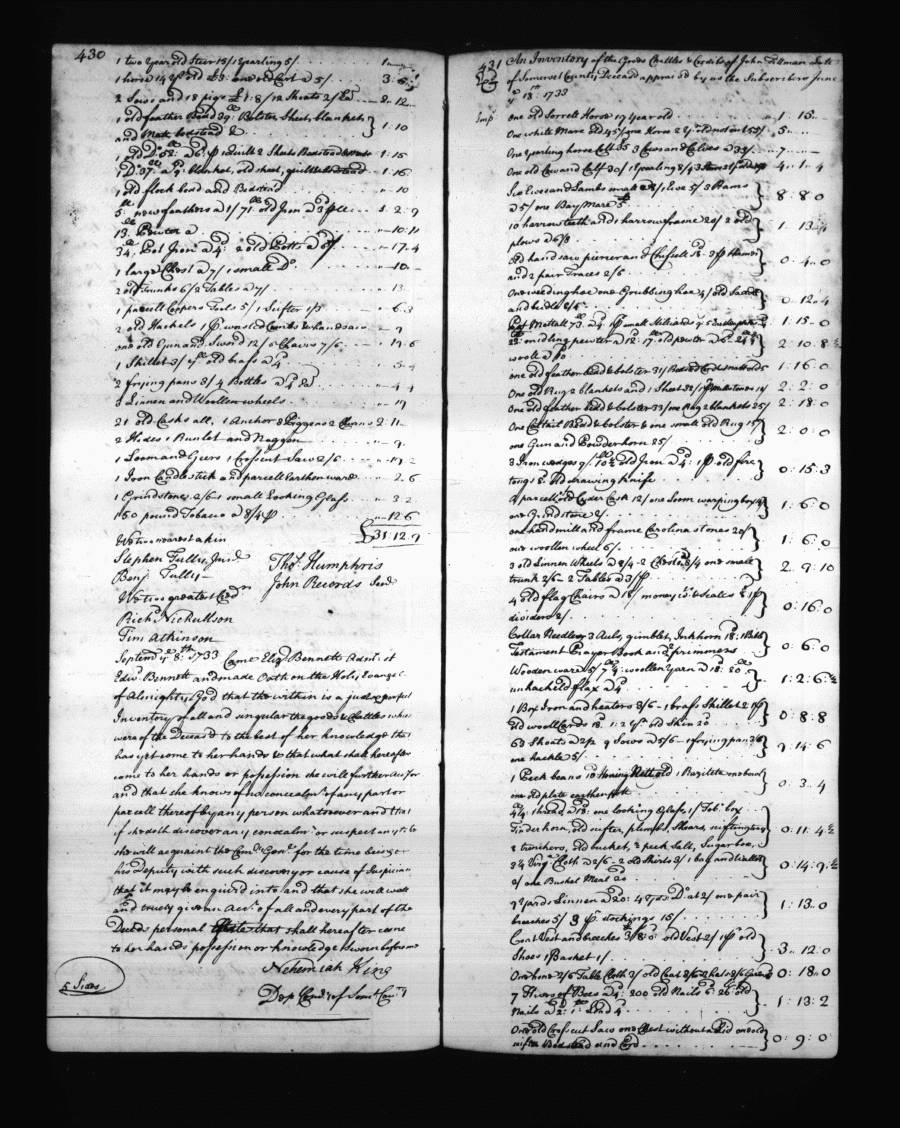 430
1 two year old Steer 15/ 1 yearling 5/
1 horse 14 yrs old £3 one old Cart a 5/ 3
2 Sows and 18 pigs £1:8/ 12 Shoats 2/ Ea 2 12
1 old feather Bedd Bolster Sheet, blanket
and Matt bedstead & 1 : 10
1 old Do 58 a 6 1 quilt 2 Sheets Beadstead & matt 1 : 15
1 Do 37 a 9 blanket, old sheet, quilt & bedstead 1 : 16
1 old flock bead and Bedstead 10
5 new feathers a 1/ 71 old Iron a 3 1 : 2 : 9
13 Pewter a 10 : 11
34 Pot Iron a 4 2 old Potts a 17 : 4
1 large Chest a 7/ 1 small Do 10
2 old Trunks 6/ 2 Tables a 7/ 13
1 parcell Coopers Tools 5/ 1 Sifter 1/3 6 : 3
2 old Hackels 1 pr worsted Combs & handsaw 9
one old Gun and Sword 12/6 Chairs 7/6 19 : 6
1 Skillet 3/ old brass a 9
2 frying pans 8/ 4 Bottles a 4 Ea 4 4
3 Linnen and Woollen wheels 19
21 old Casks all, 1 Anchor 8 Piggons 2 2 : 11
2 Hides 1 Runlet and Noggon 9
1 Loom and Geers 1 Crosscut Saw 2/6
1 Iron Candlestick and parcell Earthen ware 2 . 6
1 Grindstone 2/6 1 small Looking Glass 3 . 2
150 pound Tobacco a 8/4 12 6
£31 : 12 . 9
We two nearest a kin
Stephen Tully Junr Thos Humphris
Benj Tully John Records Senr
We two greatest Credrs
Richd Nickullson
Tim Atkinson
Septemr ye 8th 1733 Came Eliz Bennett Admx of
Edwd Bennett and made Oath on the Holy Evangels
of Almighty God that the within is a just & perfect
Inventory of all and singular the goods & Chattles which
were of the Deceasd to the best of her knowledge that
has yet come to her hands & that what shall hereafter
come to her hands or possession she will further Accot for
and that she knows of no concealmt of any part or
parcell thereof by any person whatsoever and that
if she doth discover any concealmt or suspect any to be
she will acquaint the Comry Genl for the time being or
his Deputy with such discovery or cause of Suspicion
that it may be enquired into and that she will well
and truely give an Acct of all and every part of the
Deceds personal Estate that shall hereafter come
to her hands possession or knowledge Sworn before me
Nehemiah King
Dep Comry of Somt County
5 Sides
431 An Inventory of the Goods Chattles & Credits of John Tillman Late
of Somerset County Deceasd appraised by us the Subscribers June
ye 18th 1733
Imp one old Sorrell Horse 17 year old 1 : 15
One white Mare old 45/ one Horse 2 yr old not cut 55/ 5
One yearling horse Colt 35 3 Cows and Calves a 33/ 7
One old Cow and Calf 30/ 1 yearling 8/ 4 : 1 4
Six Ewes and Lambs a 8/ 1 Ewe 5/ 3 Rams
a 5/ one Bay Mare 8 : 8 : 0
10 harrow teeth and 1 harrow frame 20/ 2 old
plows a 6/8 1 : 13 : 4
Old hand saw piercer and Chissell 18 3 pr Hames
and 2 pair Traces 2/6 0 : 4 : 0
One weeding hoe one Grubbing hoe 4/ old Saddle
and bridle 8/6 0 : 12 : 4
Pot Mettall 73 a 4 1 pr small Stilliards 9 5 1 : 15 : 0
22 midling pewter a 12 : 17 old pewter a 6
wooll a 10 2 : 10 : 8½
one old feather bead & bolster 31/ Bedstead Cord & matt old 5 1 : 16 : 0
One old Rug 2 blankets and 1 Sheet 32/ 2 : 2 : 0
One old feather bedd & bolster 33/ one Rug 2 blankets 25/ 2 : 18 : 0
One Cattail Bedd & bolster & one small old Rug 15/
one Gun and Powder horn 25/ 2 : 0 : 0
3 Iron wedges 9/ 10½ old Iron a 4 1 pr old fire
tongs & old drawing knife 0 : 15 : 3
A parcell old Cyder Cask 12/ one Loom warping box
one Grindstone 2/ 1 : 6 : 0
one hand mill and frame Carolina stones 20/
one woollen wheel 6/ 1 : 6 : 0
3 old Linnen Wheels a 8/4 2 Chests a 8/4 one small
trunk 2/6 2 Tables a 3/ 2 . 9 : 10
4 old flag Chairs a 18/ money wts & scales & 1 pr
dividers 2/ 0 : 16 : 0
Collar Needles 3 Auls, gimblet, Inkhorn 18 : 1 Bible
Testament Prayer Book and 2 primmers 0 : 6 : 0
Wooden ware 5/ 7¼ woollen yarn a 18 : 20
unhackeld flax a 4 1 : 2 : 6½
1 Box Iron and heaters 3/6 1 brass Skillet 2 1 pr
old wooll Cards 18 1 : 2 yr old Skin 20 0 : 8 : 8
63 Shoats a 2/2 9 Sows a 5/6 1 frying pan 3/6
one hackle 5/ 9 : 14 : 6
1 Peck beans 10 1 one bowl
one old plate earthen Pott 0 : 3 . 4
thread a 18 : one looking Glass, 1/ Tob box
Tinder horn, old sifter, plumb, Shears, sifting tray 0 : 11 : 4½
2 trenchers, old bucket, ½ peck Salt, Sugar box,
3¼ Virga Cloth a 2/6 2 old Shirts 2/ 1 bag and wallet 0 : 14 : 9½
2/ one Bushel Meal 20
9 Yards Linnen a 20 : 4 Do at 2/ one pair
breeches 5/ 3 pr stockings 15/ 1 : 13 : 0
Coat Vest and breeches old Vest 2/ 1 pr old
Shoes 1 Basket 1/ 3 : 12 : 0
One hone 2/6 Table Cloth 2/ old Coat 8/6 2 hats 8/6 0 : 18 : 0
7 Hives of Bees a 4 : 200 old Nails 6 : 26 old
Nails a 2 : 1 : Lead 4 1 : 13 : 2
One old Cross cut Saw one Chest without a Lid one old
sifter Bedstead and Cord 0 : 9 : 0